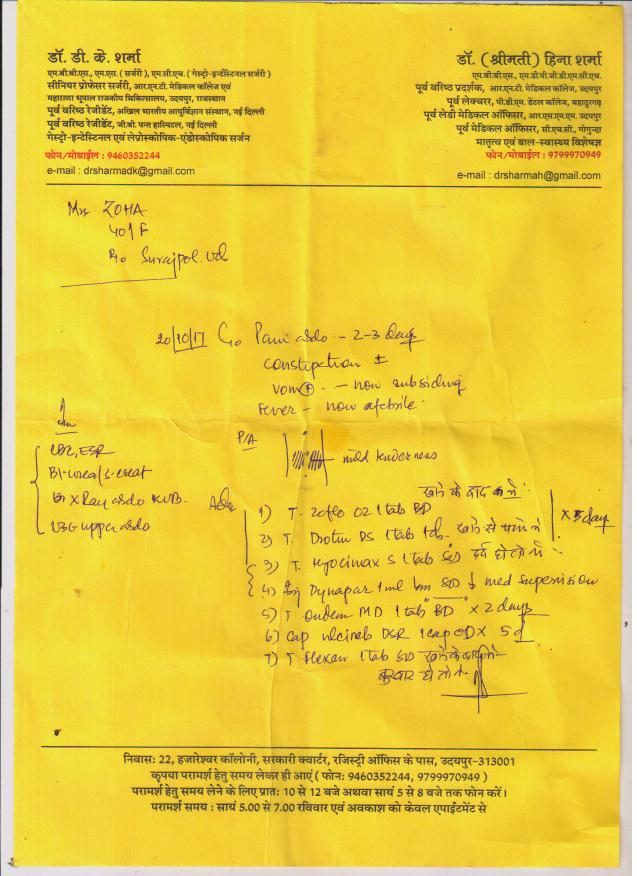 डॉ. डी. के. शर्मा
एम.बी.बी.एस., एम.एस. ( सर्जरी ), एम.सी.एच. ( गेस्ट्रो-इन्टेंस्टिनल सर्जरी )
सीनियर प्रोफेसर सर्जरी, आर.एन.टी. मेडिकल कॉलेज एवं
महाराणा भूपाल राजकीय चिकित्सालय, उदयपुर, राजस्थान
पूर्व वरिष्ठ रेजीडेंट, अखिल भारतीय आयुर्विज्ञान संस्थान, नई दिल्ली
पूर्व वरिष्ठ रेजीडेंट, जी.बी. पन्त हास्पिटल, नई दिल्ली
गेस्ट्रो-इन्टेस्टिनल एवं लेप्रोस्कोपिक-एंडोस्कोपिक सर्जन
फोन/मोबाईल : 9460352244
e-mail : drsharmadk@gmail.com
डॉ. (श्रीमती) हिना शर्मा
एम.बी.बी.एस., एम.डी.पी.जी.डी.एम.सी.एच.
पूर्व वरिष्ठ प्रदर्शक, आर.एन.टी. मेडिकल कॉलेज, उदयपुर
पूर्व लेक्चरर, पी.डी.एम. डेंटल कॉलेज, बहादुरगढ़
पूर्व लेडी मेडिकल ऑफिसर, आर.एस.एम.एम. उदयपुर
पूर्व मेडिकल ऑफिसर, सी.एच.सी., गोगुन्दा
मातृत्व एवं बाल-स्वास्थ्य विशेषज्ञ
फोन/मोबाईल : 9799970949
e-mail : drsharmah@gmail.com
ZOHA
40/F
R/o Surajpol. Ud
20/10/17 C/o Pain abdo - 2-3 days
constipation ±
vom ⊕ - now subsiding
Fever - now afebrile
P/A mild tenderness
CBC, ESR
Bl-urea/S-creat
X Ray abdo KUB
USG upper abdo
Adv
खाने के बाद में
1) T. Zoflo OZ 1 tab BD
2) T. Drotin DS 1 tab खाने से पहले
x 5 days
3) T. Hyocimax S 1 tab SOS दर्द हो तो
4) Inj Dynapar 1 ml Im SOS med supervision
5) T Ondem MD 1 tab BD x 2 days
6) Cap DSR 1 cap OD x 5 d
7) T. Flexon 1 tab SOS खाने के बाद में
बुखार हो तो
निवास: 22, हजारेश्वर कॉलोनी, सरकारी क्वार्टर, रजिस्ट्री ऑफिस के पास, उदयपुर-313001
कृपया परामर्श हेतु समय लेकर ही आएं ( फोन: 9460352244, 9799970949 )
परामर्श हेतु समय लेने के लिए प्रात: 10 से 12 बजे अथवा सायं 5 से 8 बजे तक फोन करें।
परामर्श समय : सायं 5.00 से 7.00 रविवार एवं अवकाश को केवल एपाईंटमेंट से